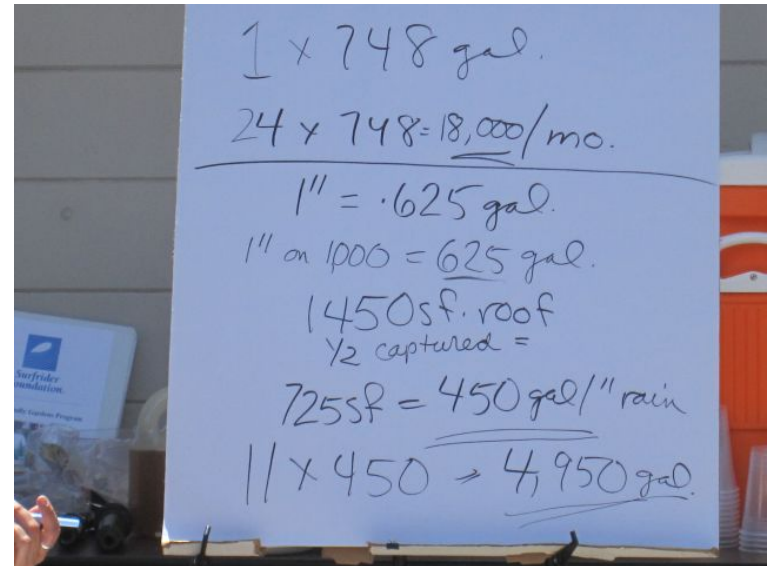 1 x 748 gal.
24 x 748 = 18,000/mo.
1" = .625 gal.
1" on 1000 = 625 gal.
1450sf. roof
1/2 captured =
725sf = 450 gal/" rain
11 x 450 → 4,950 gal.
Surfrider
Foundation
Gardens Program